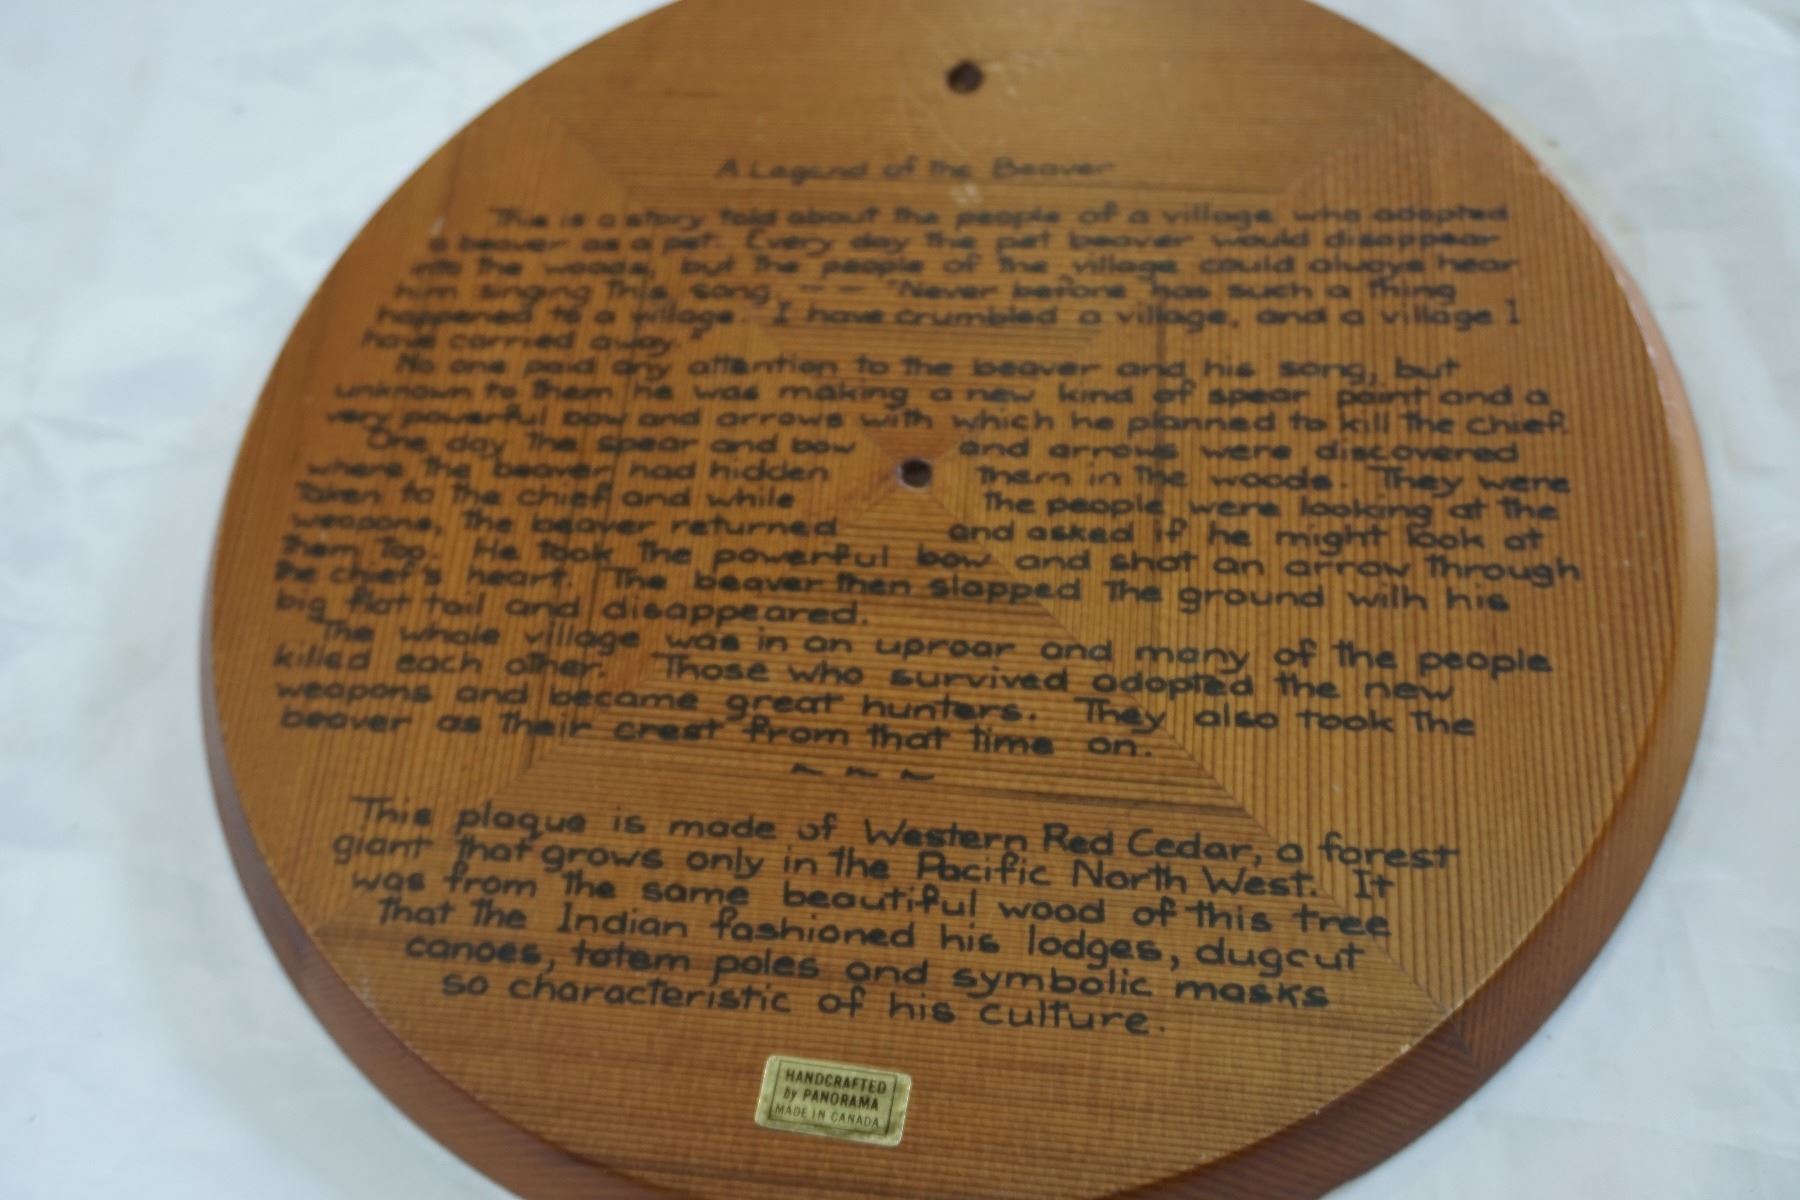 A Legend of the Beaver
This is a story told about the people of a village who adopted
a beaver as a pet. Every day the pet beaver would disappear
into the woods, but the people of the village could always hear
him singing this song -- "Never before has such a thing
happened to a village. I have crumbled a village, and a village I
have carried away."
No one paid any attention to the beaver and his song, but
unknown to them he was making a new kind of spear point and a
very powerful bow and arrows with which he planned to kill the chief.
One day the spear and bow and arrows were discovered
where the beaver had hidden them in the woods. They were
taken to the chief and while the people were looking at the
weapons, the beaver returned and asked if he might look at
them too. He took the powerful bow and shot an arrow through
the chief's heart. The beaver then slapped the ground with his
big flat tail and disappeared.
The whole village was in an uproar and many of the people
killed each other. Those who survived adopted the new
weapons and became great hunters. They also took the
beaver as their crest from that time on.
~ ~ ~
This plaque is made of Western Red Cedar, a forest
giant that grows only in the Pacific North West. It
was from the same beautiful wood of this tree
that the Indian fashioned his lodges, dugout
canoes, totem poles and symbolic masks
so characteristic of his culture.
HANDCRAFTED
by PANORAMA
MADE IN CANADA